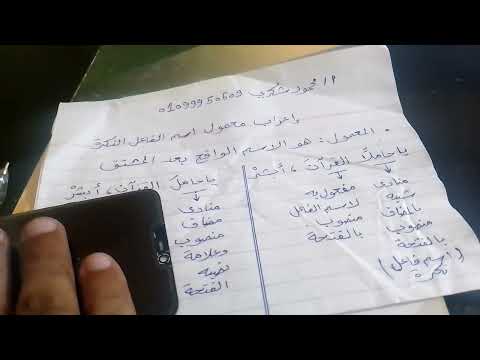 أ/ محمود شكرى 01099950609
إعراب معمول اسم الفاعل النكرة
• المعمول: هو الاسم الواقع بعد المشتق
يا حاملًا القرآنَ، أبشرْ
منادى
شبيه
بالمضاف
منصوب
بالفتحة
(اسم فاعل
نكرة)
مفعول به
لاسم الفاعل
منصوب
بالفتحة
يا حاملَ القرآن، أبشرْ
منادى
مضاف
منصوب
وعلامة
نصبه
الفتحة